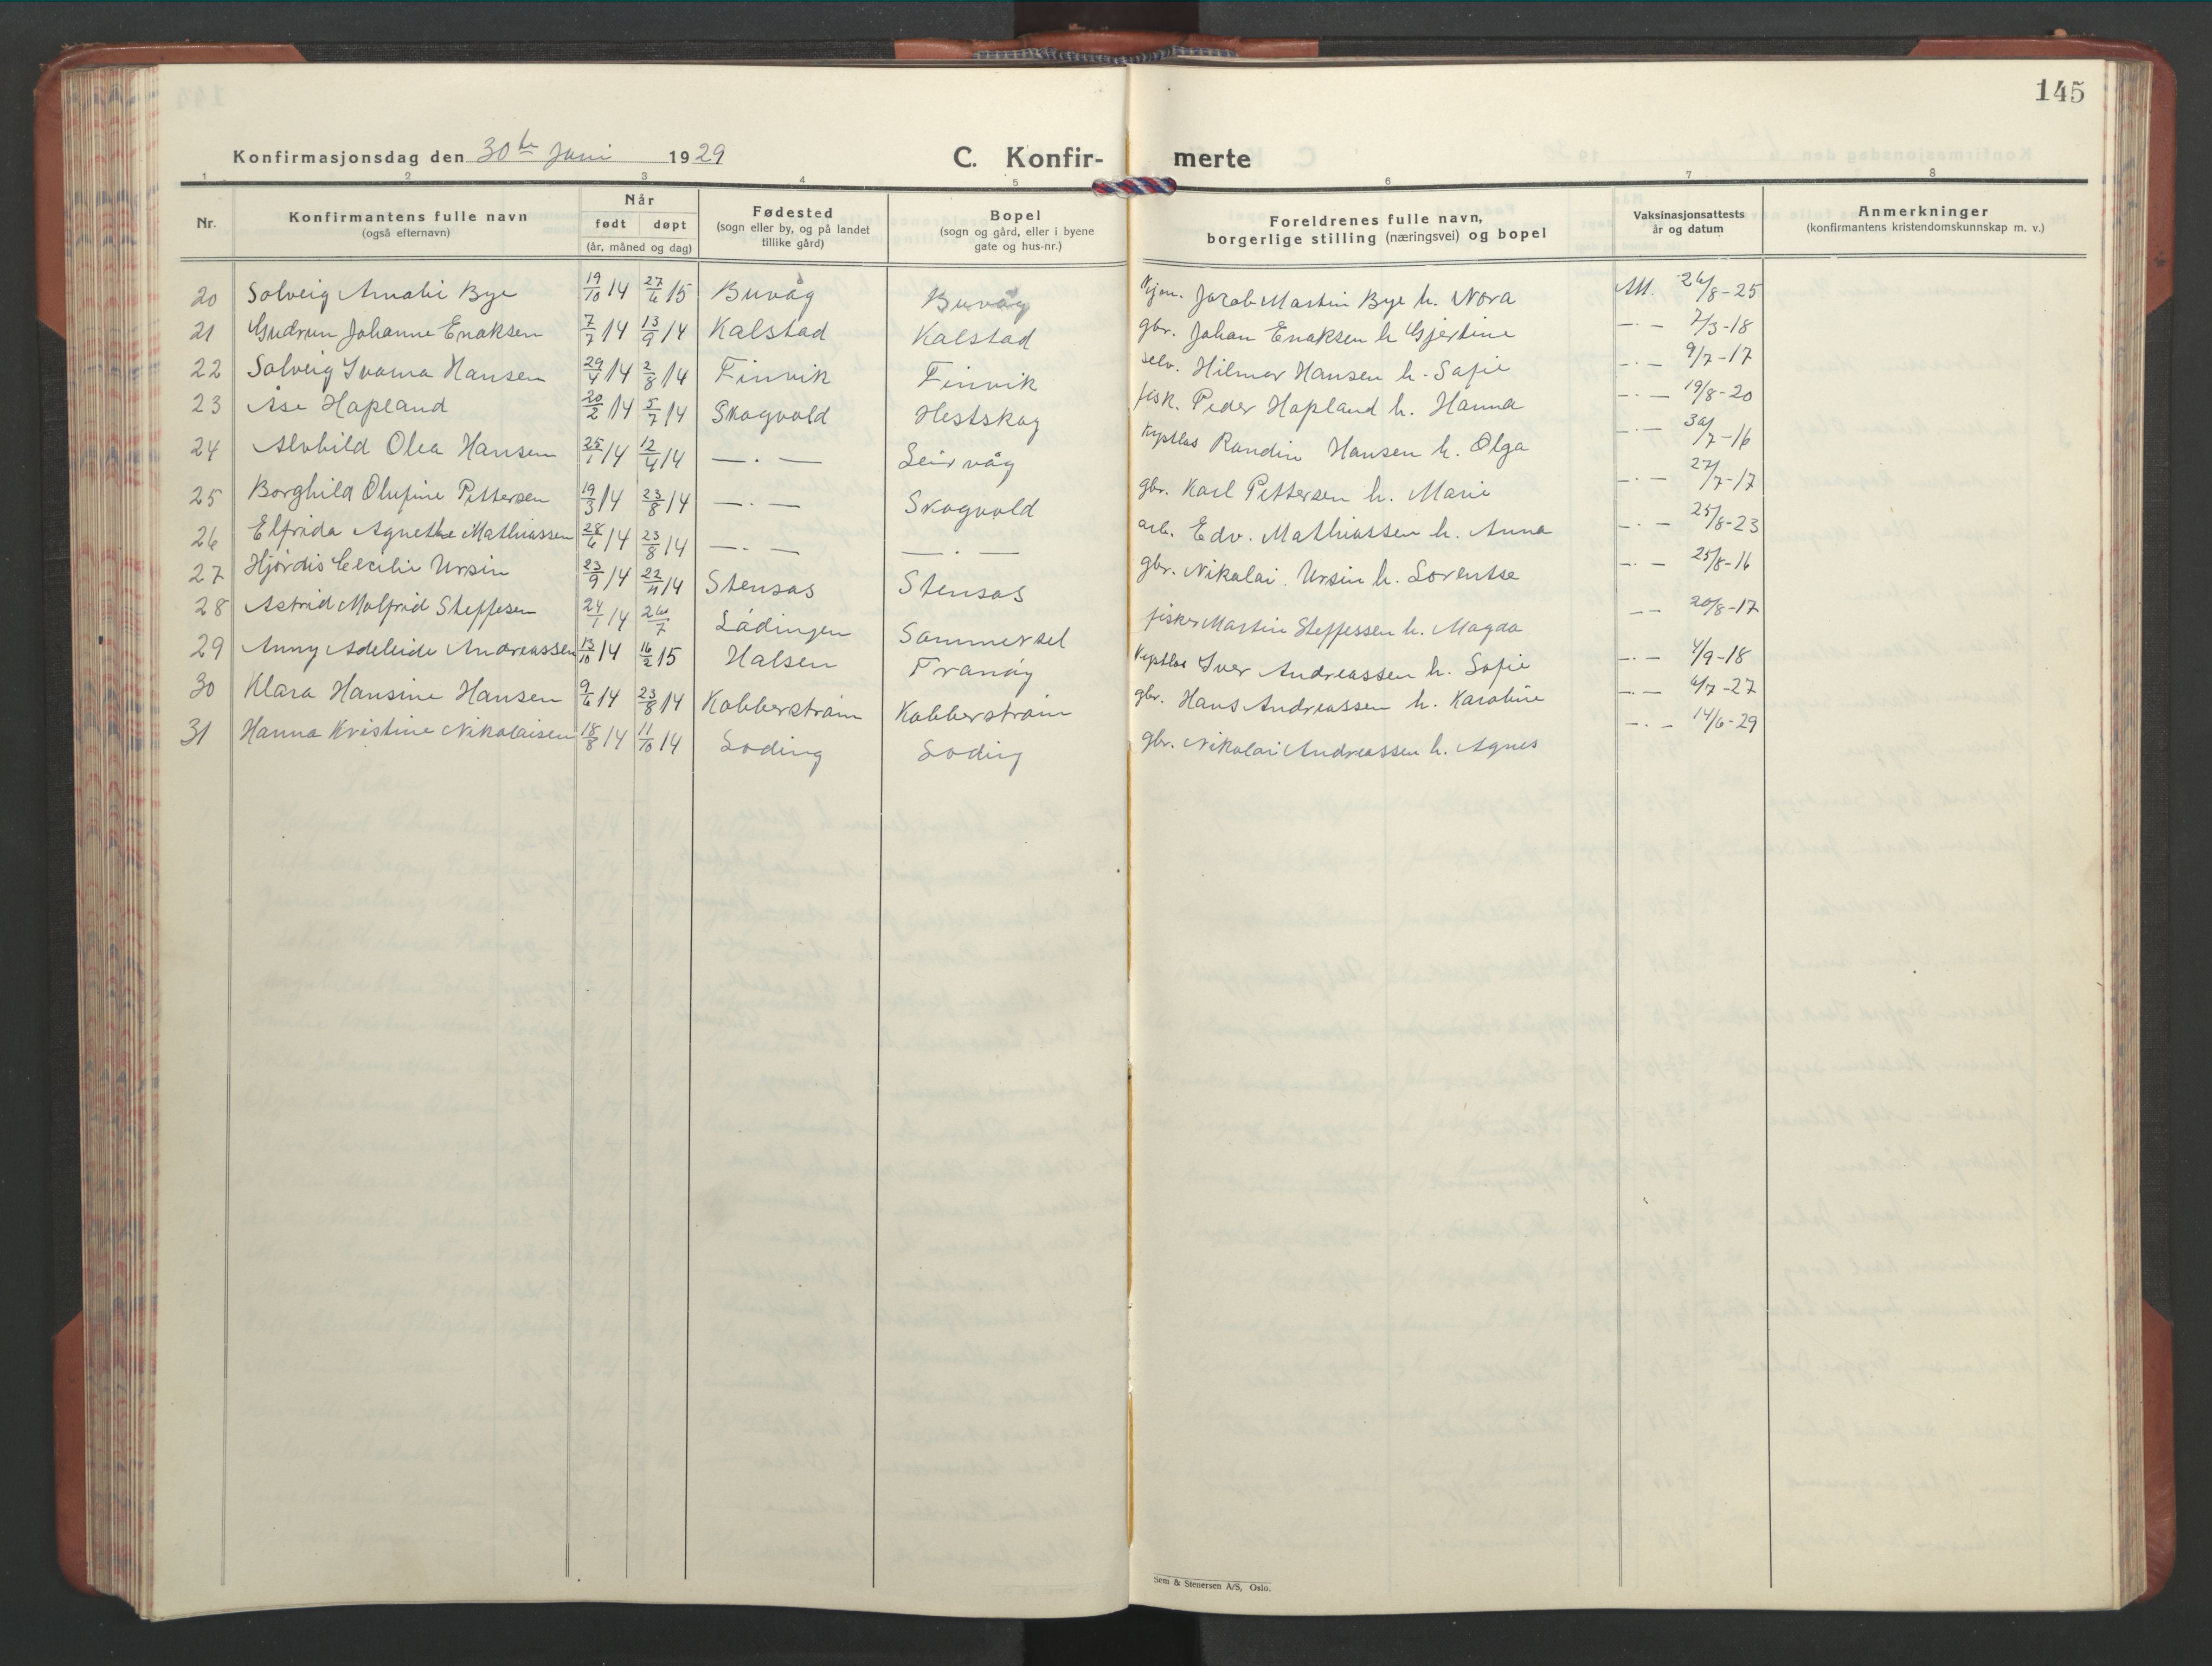 145
Konfirmasjonsdag den 30te Juni 1929 C. Konfir- merte
1 2 3 4 5 6 7 8
Nr. Konfirmantens fulle navn (også efternavn) Når født døpt (år, måned og dag) Fødested (sogn eller by, og på landet tillike gård) Bopel (sogn og gård, eller i byene gate og hus-nr.) Foreldrenes fulle navn, borgerlige stilling (næringsvei) og bopel Vaksinasjonsattests år og datum Anmerkninger (konfirmantens kristendomskunnskap m. v.)
20 Solveig Amalie Bye 19/10 14 27/6 15 Buvåg Buvåg Jacob Martin Bye h. Nora 26/8-25
21 Gudrun Johanne Enoksen 7/7 14 13/9 14 Kalstad Kalstad gbr. Johan Enoksen h Gjertine —.— 7/3-18
22 Solveig Ivarna Hansen 29/4 14 2/8 14 Finvik Finvik selv. Hilmar Hansen h. Sofie —.— 9/7-17
23 Åse Hopland 20/2 14 5/7 14 Skogvold Hestskog fisk. Peder Hopland h. Hanna —.— 19/8-20
24 Alvhild Olea Hansen 25/1 14 12/4 14 —.— Leirvåg Randin Hansen h. Olga —.— 30/7-16
25 Borghild Olufine Pettersen 19/3 14 23/8 14 —.— Skogvold gbr. Karl Pettersen h. Marie —.— 27/7-17
26 Elfrida Agnethe Mathiassen 28/6 14 23/8 14 —.— —.— arb. Edv. Mathiassen h. Anna —.— 25/8-23
27 Hjørdis Cecilie Ursin 23/9 14 22/11 14 Stensås Stensås gbr. Nikolai Ursin h. Lorentse —.— 25/8-16
28 Astrid Molfrid Steffesen 24/1 14 26/7 Lødingen Sommersel fisker Martin Steffessen h. Magda —— 20/8-17
29 Anny Adeleide Andreassen 13/10 14 16/2 15 Halsen Tranøy Iver Andreassen h. Sofie —.— 4/9-18
30 Klara Hansine Hansen 9/6 14 23/8 14 Kobberstrøm Kobberstrøm gbr. Hans Andreassen h. Karoline —.— 6/7-27
31 Hanna Kristine Nikolaisen 18/8 14 11/10 14 Loding Loding gbr. Nikolai Andreassen h. Agnes —.— 14/6-29
Sem & Stenersen A/S, Oslo.